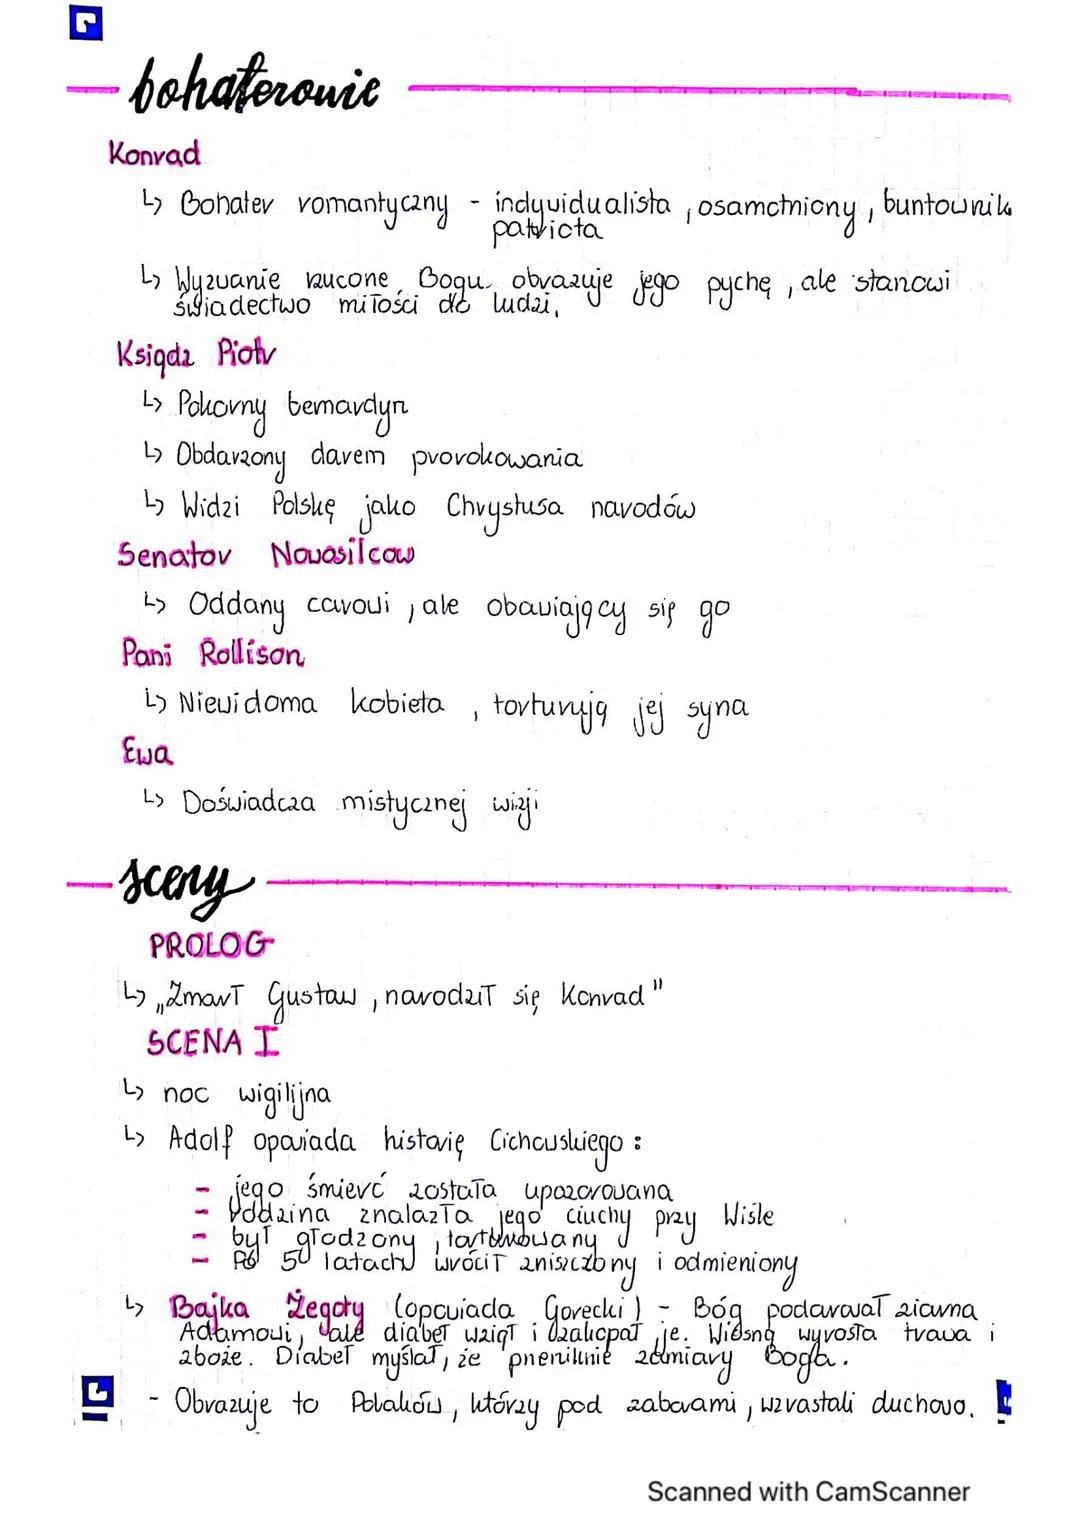 bohaterowie
Konrad
↳ Bohater romantyczny - indywidualista, osamotniony, buntownik
patriota
↳ Wyzwanie rzucone Bogu obrazuje jego pychę, ale stanowi
świadectwo miłości do ludzi.
Ksiądz Piotr
↳ Pokorny bernardyn
↳ Obdarzony darem prorokowania
↳ Widzi Polskę jako Chrystusa narodów
Senator Nowosilcow
↳ Oddany carowi, ale obawiający się go
Pani Rollison
↳ Niewidoma kobieta, torturują jej syna
Ewa
↳ Doświadcza mistycznej wizji
sceny
PROLOG
↳ „Zmarł Gustaw, narodził się Konrad"
SCENA I
↳ noc wigilijna
↳ Adolf opowiada historię Cichowskiego:
- jego śmierć została upozorowana
- rodzina znalazła jego ciuchy przy Wiśle
- był głodzony, torturowany
- Po 50 latach wrócił zniszczony i odmieniony
↳ Bajka Żegoty (opowiada Gorecki) - Bóg podarował ziarna
Adamowi, ale diabeł wziął i zakopał je. Wiosną wyrosła trawa i
zboże. Diabeł myślał, że przeniknie zamiary Boga.
- Obrazuje to Polaków, którzy pod zaborami, wzrastali duchowo.
Scanned with CamScanner